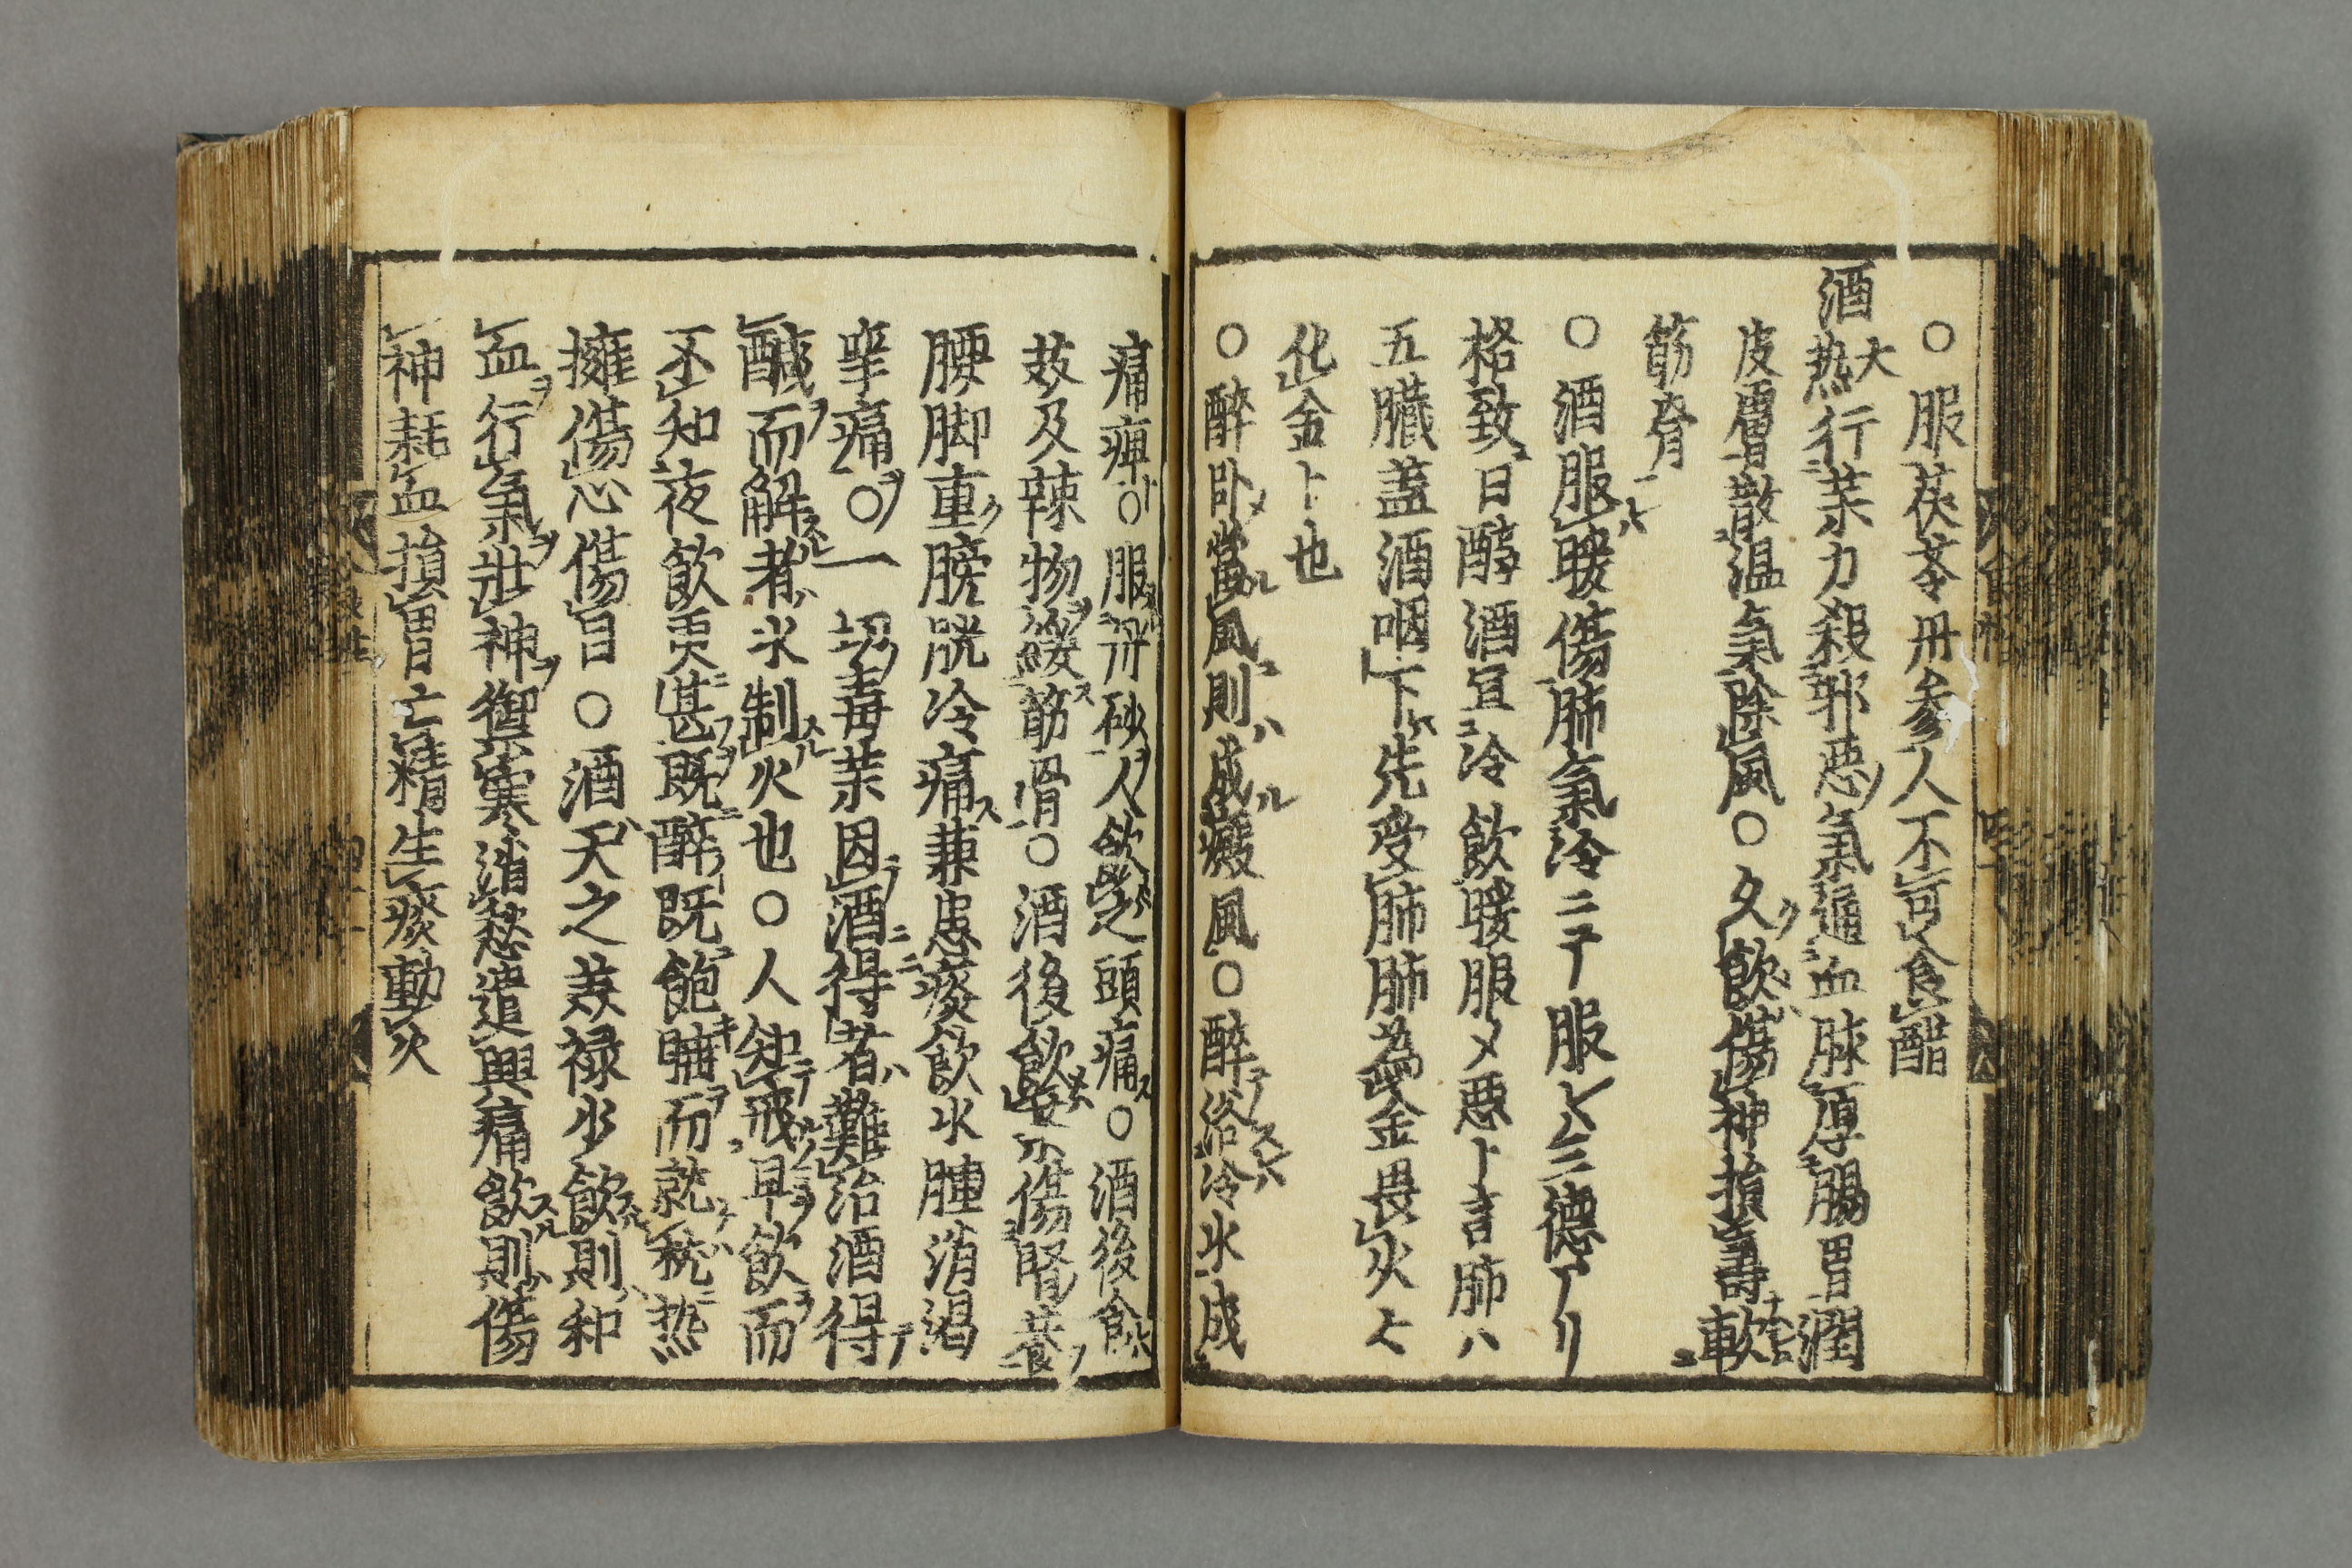 ○服茯苓丹参人不可食醋
酒大热行藥力殺邪惡氣通血脉厚腸胃潤
皮膚散温氣除風○久飲傷神損壽軟
筋脊
○酒服暖傷肺氣冷ニテ服レハ三德アリ
格致曰醇酒冝冷飲暖服メ悪ト言肺ハ
五臓蓋酒咽下先受肺肺為金畏火ヒ
化金ト也
○醉卧當風則成癜風○醉浴冷水成
痛痺○服丹砂人飲之頭痛○酒後食
芥及辣物緩筋骨○酒後飲茶傷腎養
腰脚重膀胱冷痛兼患痰飲水腫消渇
攣痛○一切毒藥因酒得者難治酒得
醎而解者水制火也○人知戒早飲而
不知夜飲更甚既醉既飽睡而就枕热
擁傷心傷目○酒天之美禄少飲則和
血行氣壯神禦寒消愁遣興痛飲則傷
神耗血損胃亡精生痰動火